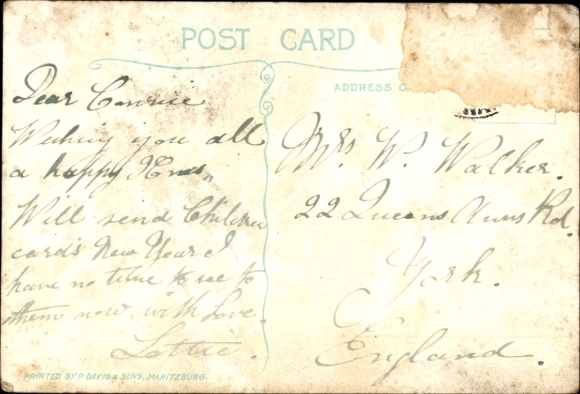 POST CARD
ADDRESS O
Dear Connie
Wishing you all
a happy Xmas
Will send Children
cards New Year I
have no time to see to
them now with Love.
Lottie.
Mrs. W. Walker.
22 Queens Anns Rd.
York.
England.
PRINTED BY P. DAVIS & SONS, MARITZBURG.